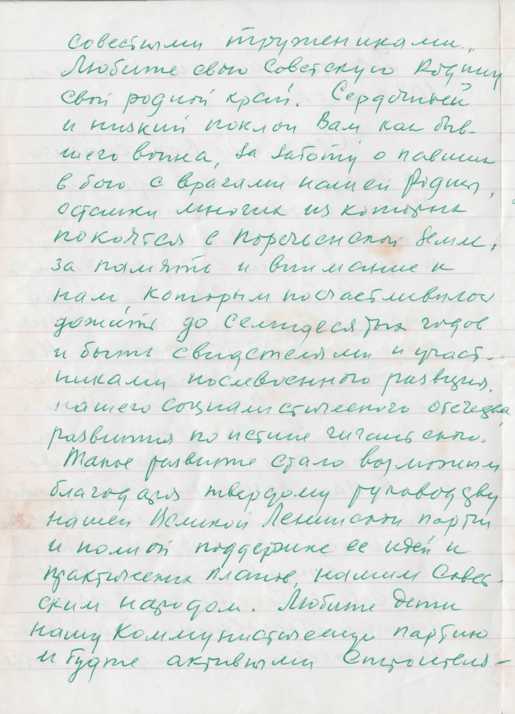 совестными тружениками.
Любите свою Советскую Родину
свой родной край. Сердечный
и низкий поклон Вам как быв-
шего воина, за заботу о павших
в бою с врагами нашей Родины,
останки многих из которых
покоятся в Пореченской земле,
за память и внимание к
нам, которым посчастливилось
дожить до семидесятых годов
и быть свидетелями и участ-
никами послевоенного развития
нашего социалистического отечества,
развития поистине гигантского.
Такое развитие стало возможным
благодаря твердому руководству
нашей Великой Ленинской партии
и полной поддержке ее идей и
практических планов, нашим Совет-
ским народом. Любите дети
нашу Коммунистическую партию
и будьте активными строителя-